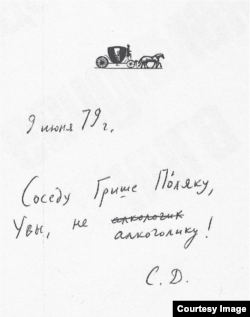 9 июня 79 г.
Соседу Грише Поляку,
Увы, не алкоголик
алкоголику!
С. Д.
Courtesy Image